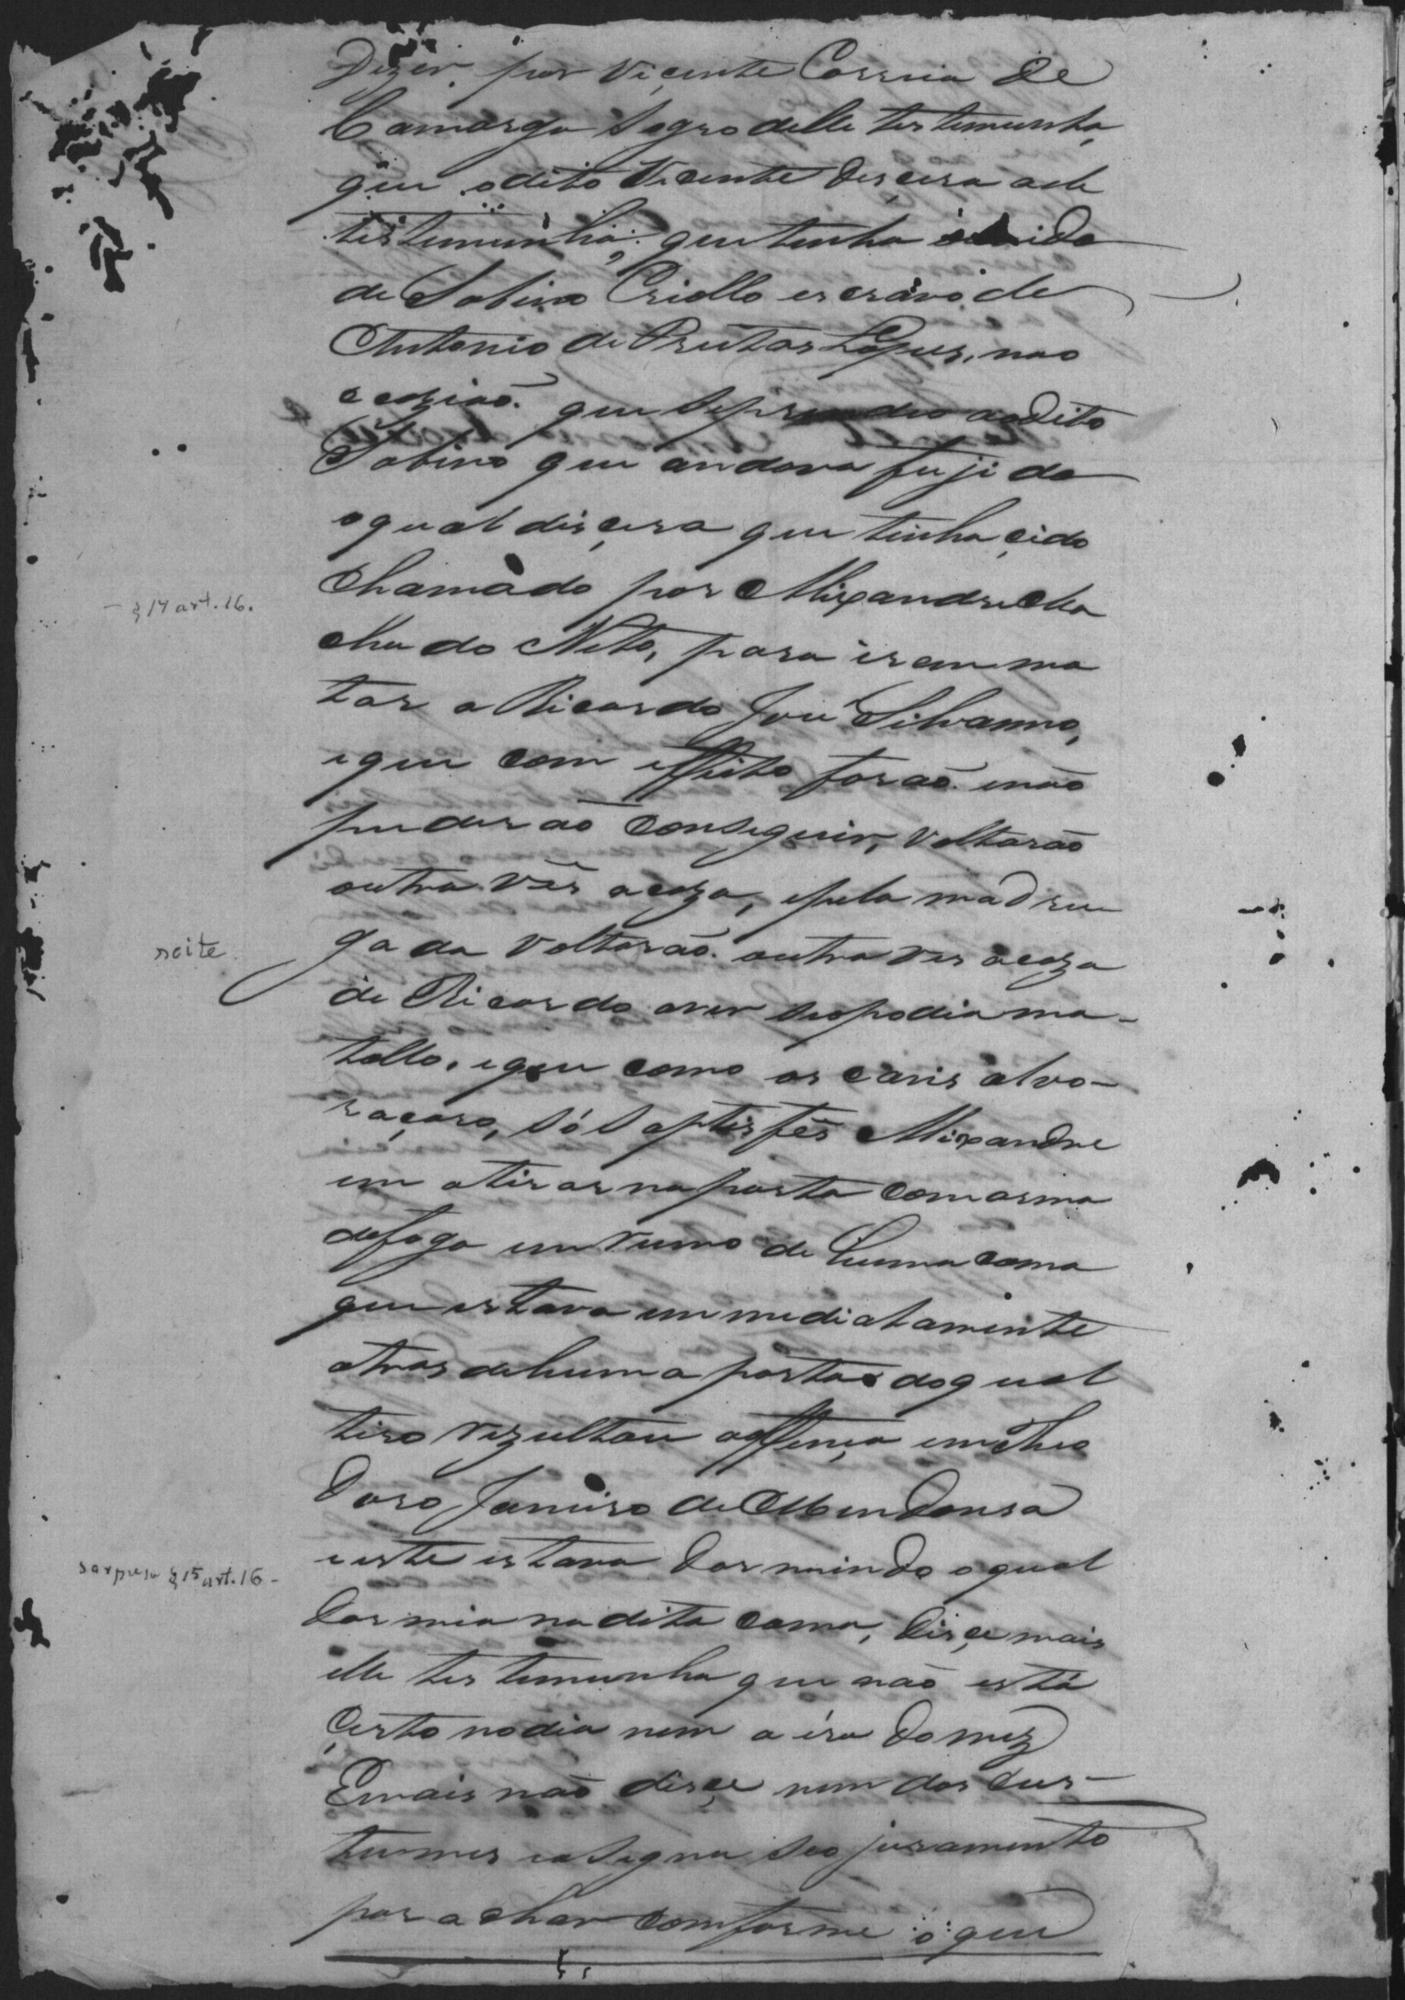 Dizer, por Viçente Correia de
Camargo Sogro delle testemunha,
que o dito Vicente disçera a ele
testemunha; que tinha ouvido
de Sabino Criollo escravo de
Antonio de Freitas Lopes, na o
cazião que se prendeo ao dito
Sabino que andava fujido
o qual disçera que tinha çido
Chamado por Alixandre Ma
chado Neto, para irem ma
tar a Ricardo José Silvanno,
e que com effeito forão e não
puderão Conseguir, voltarão
outra vês a caza, e pela madru
gada voltarão outra ves a caza
de Ricardo a ver seo podia ma-
tallo, e que como os cains alvo-
raçaro, só saptisfês Alixandre
em atirar na porta com arma
de fogo em rumo de huma cama
que estava immediatamente
atras de huma porta do qual
tiro rezultou offença em Theo
doro Janeiro de Mendonsa
e este estava dormindo o qual
dormia na dita cama, disçe mais
elle testemunha que não está
Çerto no dia nem a éra do mez
E mais não disçe nem dos Cus-
tumes e asegna seo juramento
por achar comforme o que
§ 17 art. 16.
noite
sorpresa § 15 art. 16 -